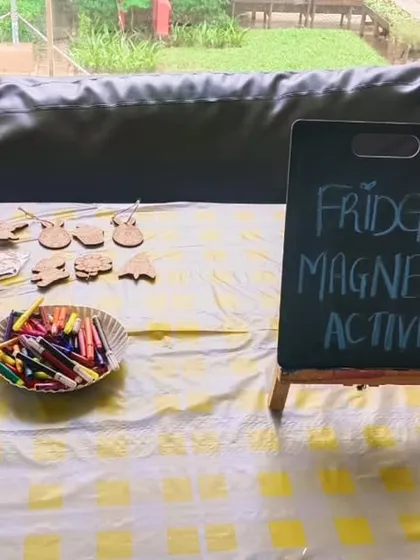 FRIDG
MAGNE
ACTIVI